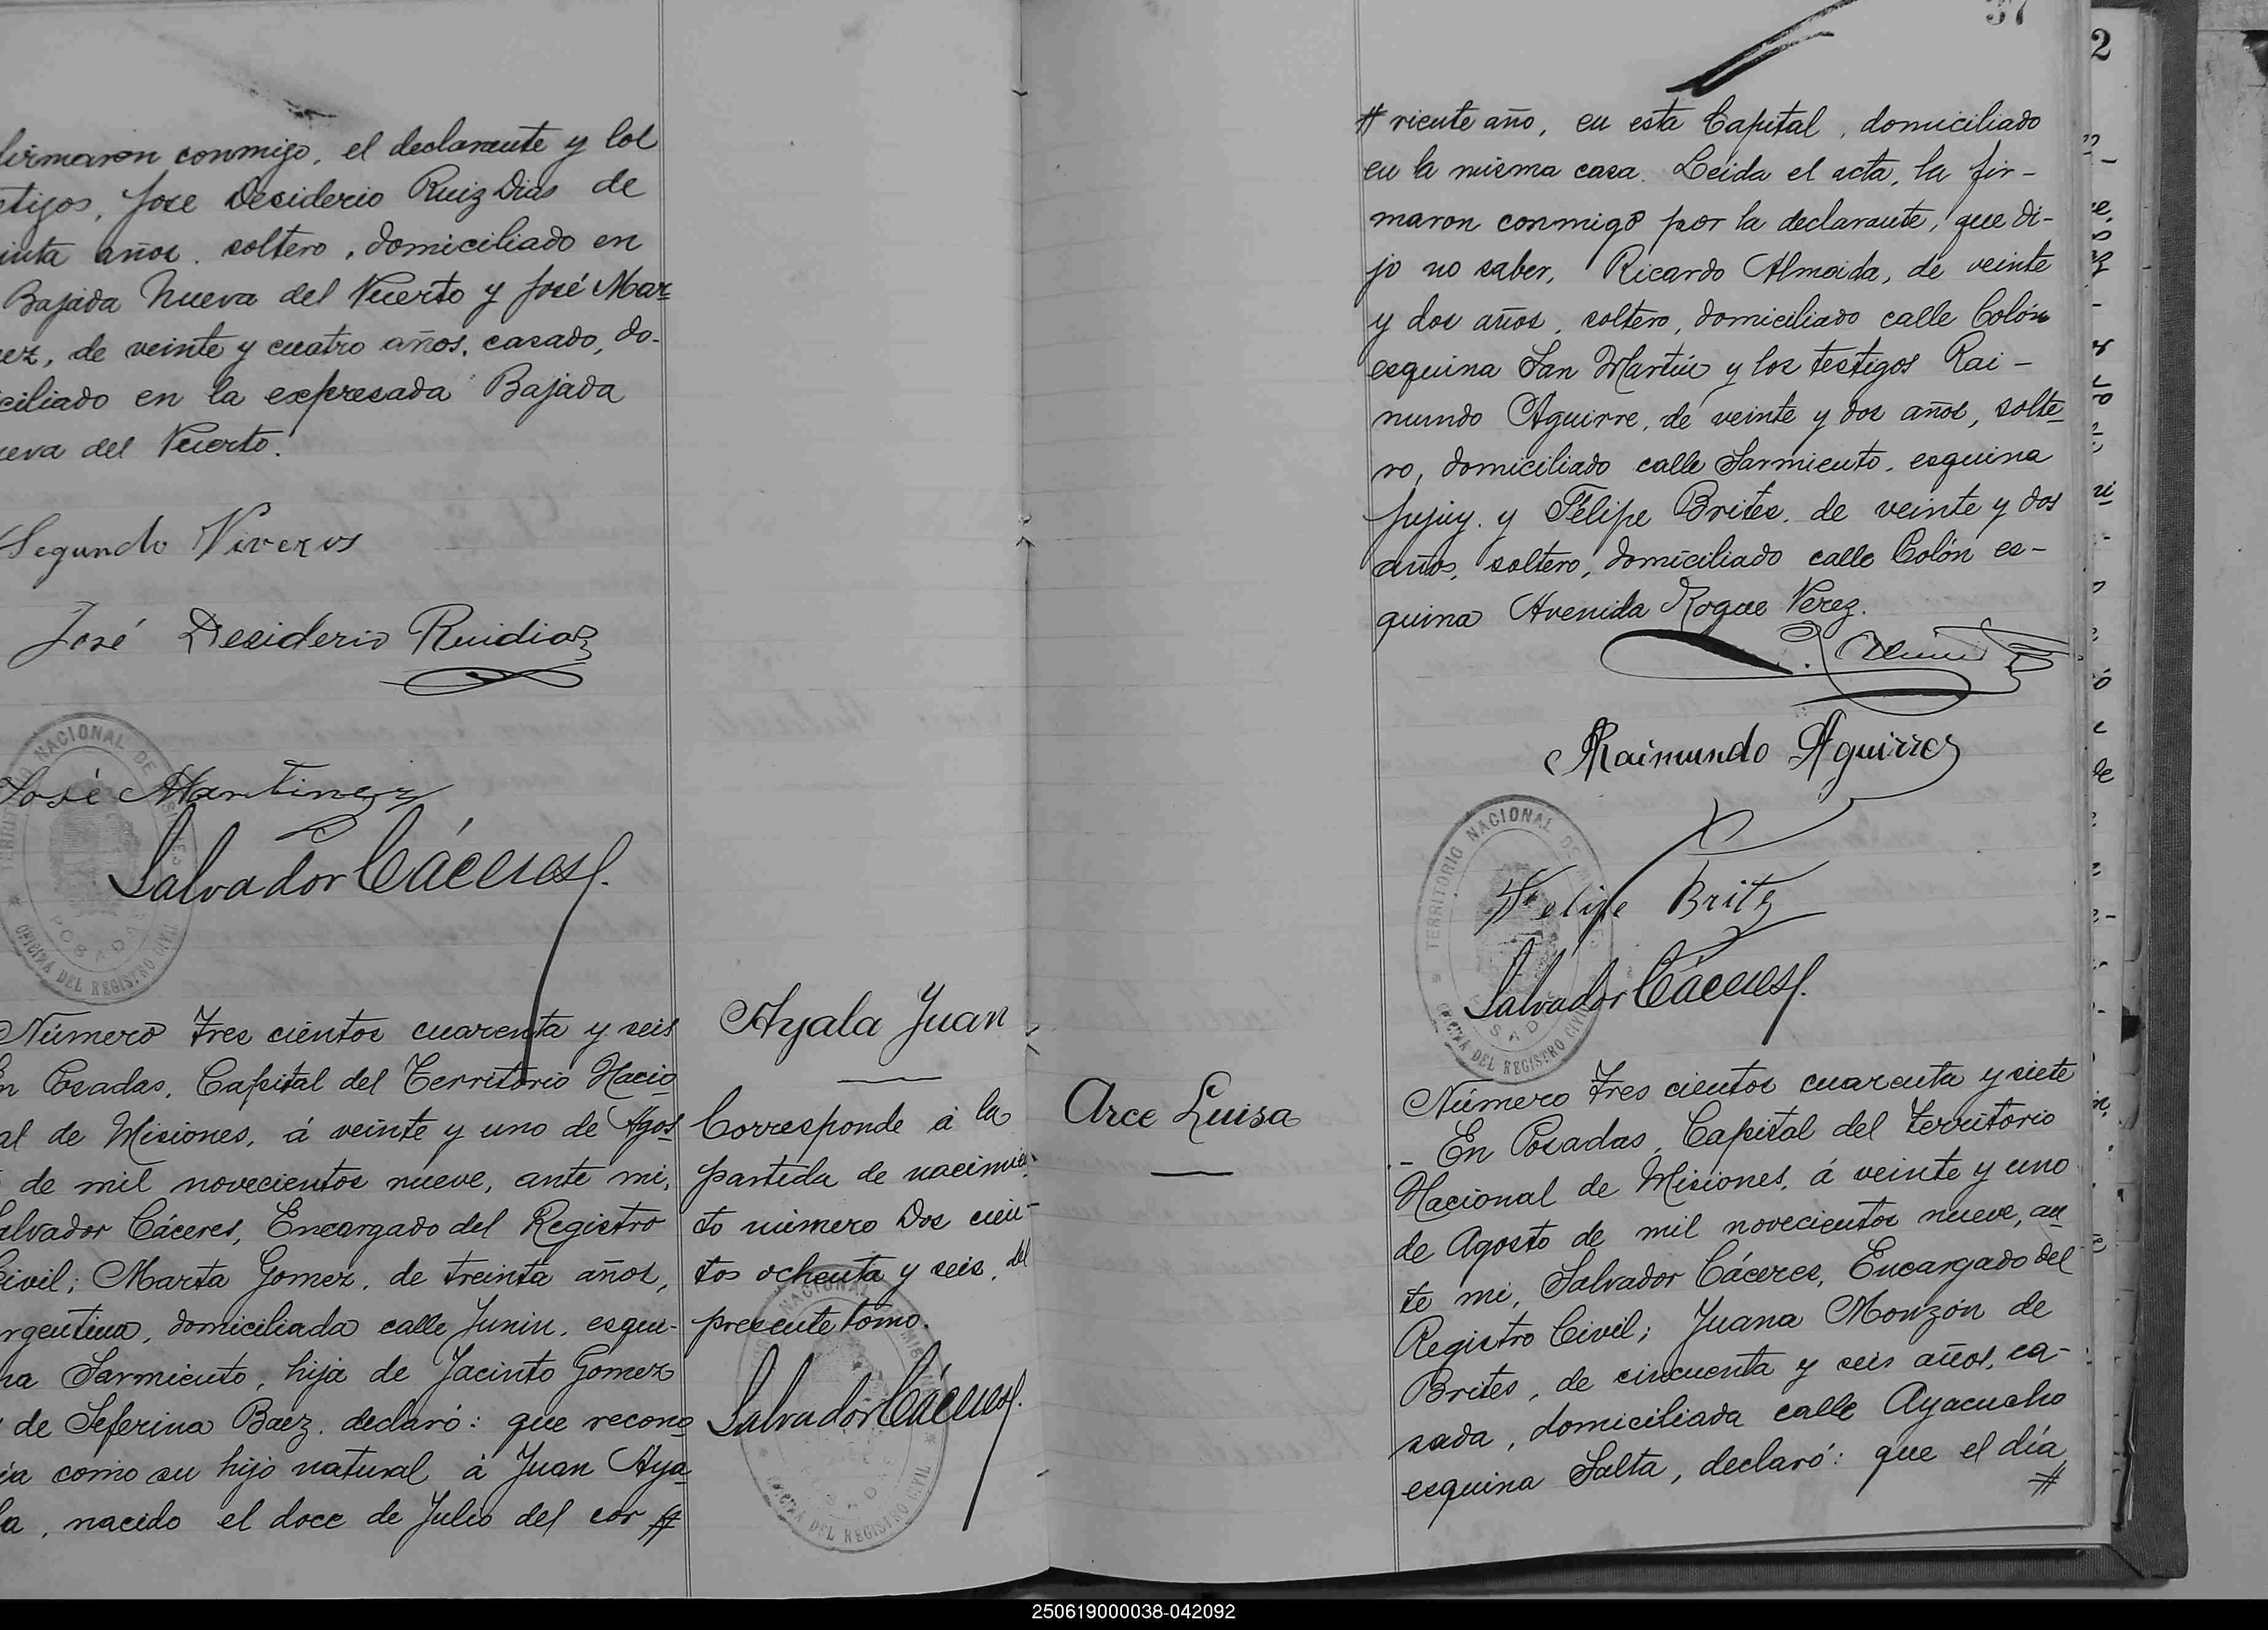 firmaron conmigo, el declarante y los
tigos, Jose Desiderio Ruiz Dias de
inta años, soltero, domiciliado en
Bajada Nueva del Puerto y José Mar-
ez, de veinte y cuatro años, casado, do-
ciliado en la expresada Bajada
ueva del Puerto.
Segundo Viveros
José Desiderio Ruidiaz
José Martinez
Salvador Cáceres
TERRITORIO NACIONAL DE MISIONES
POSADAS
OFICINA DEL REGISTRO CIVIL
Número Tres cientos cuarenta y seis
En Posadas, Capital del Territorio Nacio
al de Misiones, á veinte y uno de Agos
de mil novecientos nueve, ante mi,
Salvador Cáceres, Encargado del Registro
Civil; Marta Gomez, de treinta años,
rgentina, domiciliada calle Junin, esqui-
na Sarmiento, hija de Jacinto Gomez
y de Seferina Baez, declaró: que recono
cia como su hijo natural á Juan Aya-
la, nacido el doce de Julio del cor #
Ayala Juan
Corresponde á la
partida de nacimien
to número Dos cien-
tos ochenta y seis, del
presente tomo.
Salvador Cáceres
TERRITORIO NACIONAL DE MISIONES
POSADAS
OFICINA DEL REGISTRO CIVIL
Arce Luisa
37
# riente año, en esta Capital, domiciliado
en la misma casa. Leida el acta, la fir-
maron conmigo por la declarante, que di-
jo no saber, Ricardo Almeida, de veinte
y dos años, soltero, domiciliado calle Colón
esquina San Martin y los testigos Rai-
mundo Aguirre, de veinte y dos años, solte-
ro, domiciliado calle Sarmiento, esquina
Jujuy, y Félipe Brites, de veinte y dos
años, soltero, domiciliado calle Colón es-
quina Avenida Roque Perez.
Raimundo Aguirre
Felipe Britz
Salvador Cáceres
TERRITORIO NACIONAL DE MISIONES
POSADAS
OFICINA DEL REGISTRO CIVIL
Número Tres cientos cuarenta y siete
- En Posadas, Capital del Territorio
Nacional de Misiones, á veinte y uno
de Agosto de mil novecientos nueve, an
te mi, Salvador Cáceres, Encargado del
Registro Civil; Juana Monzón de
Brites, de cincuenta y seis años, ca-
sada, domiciliada calle Ayacucho
esquina Salta, declaró: que el día
#
2
250619000038-042092